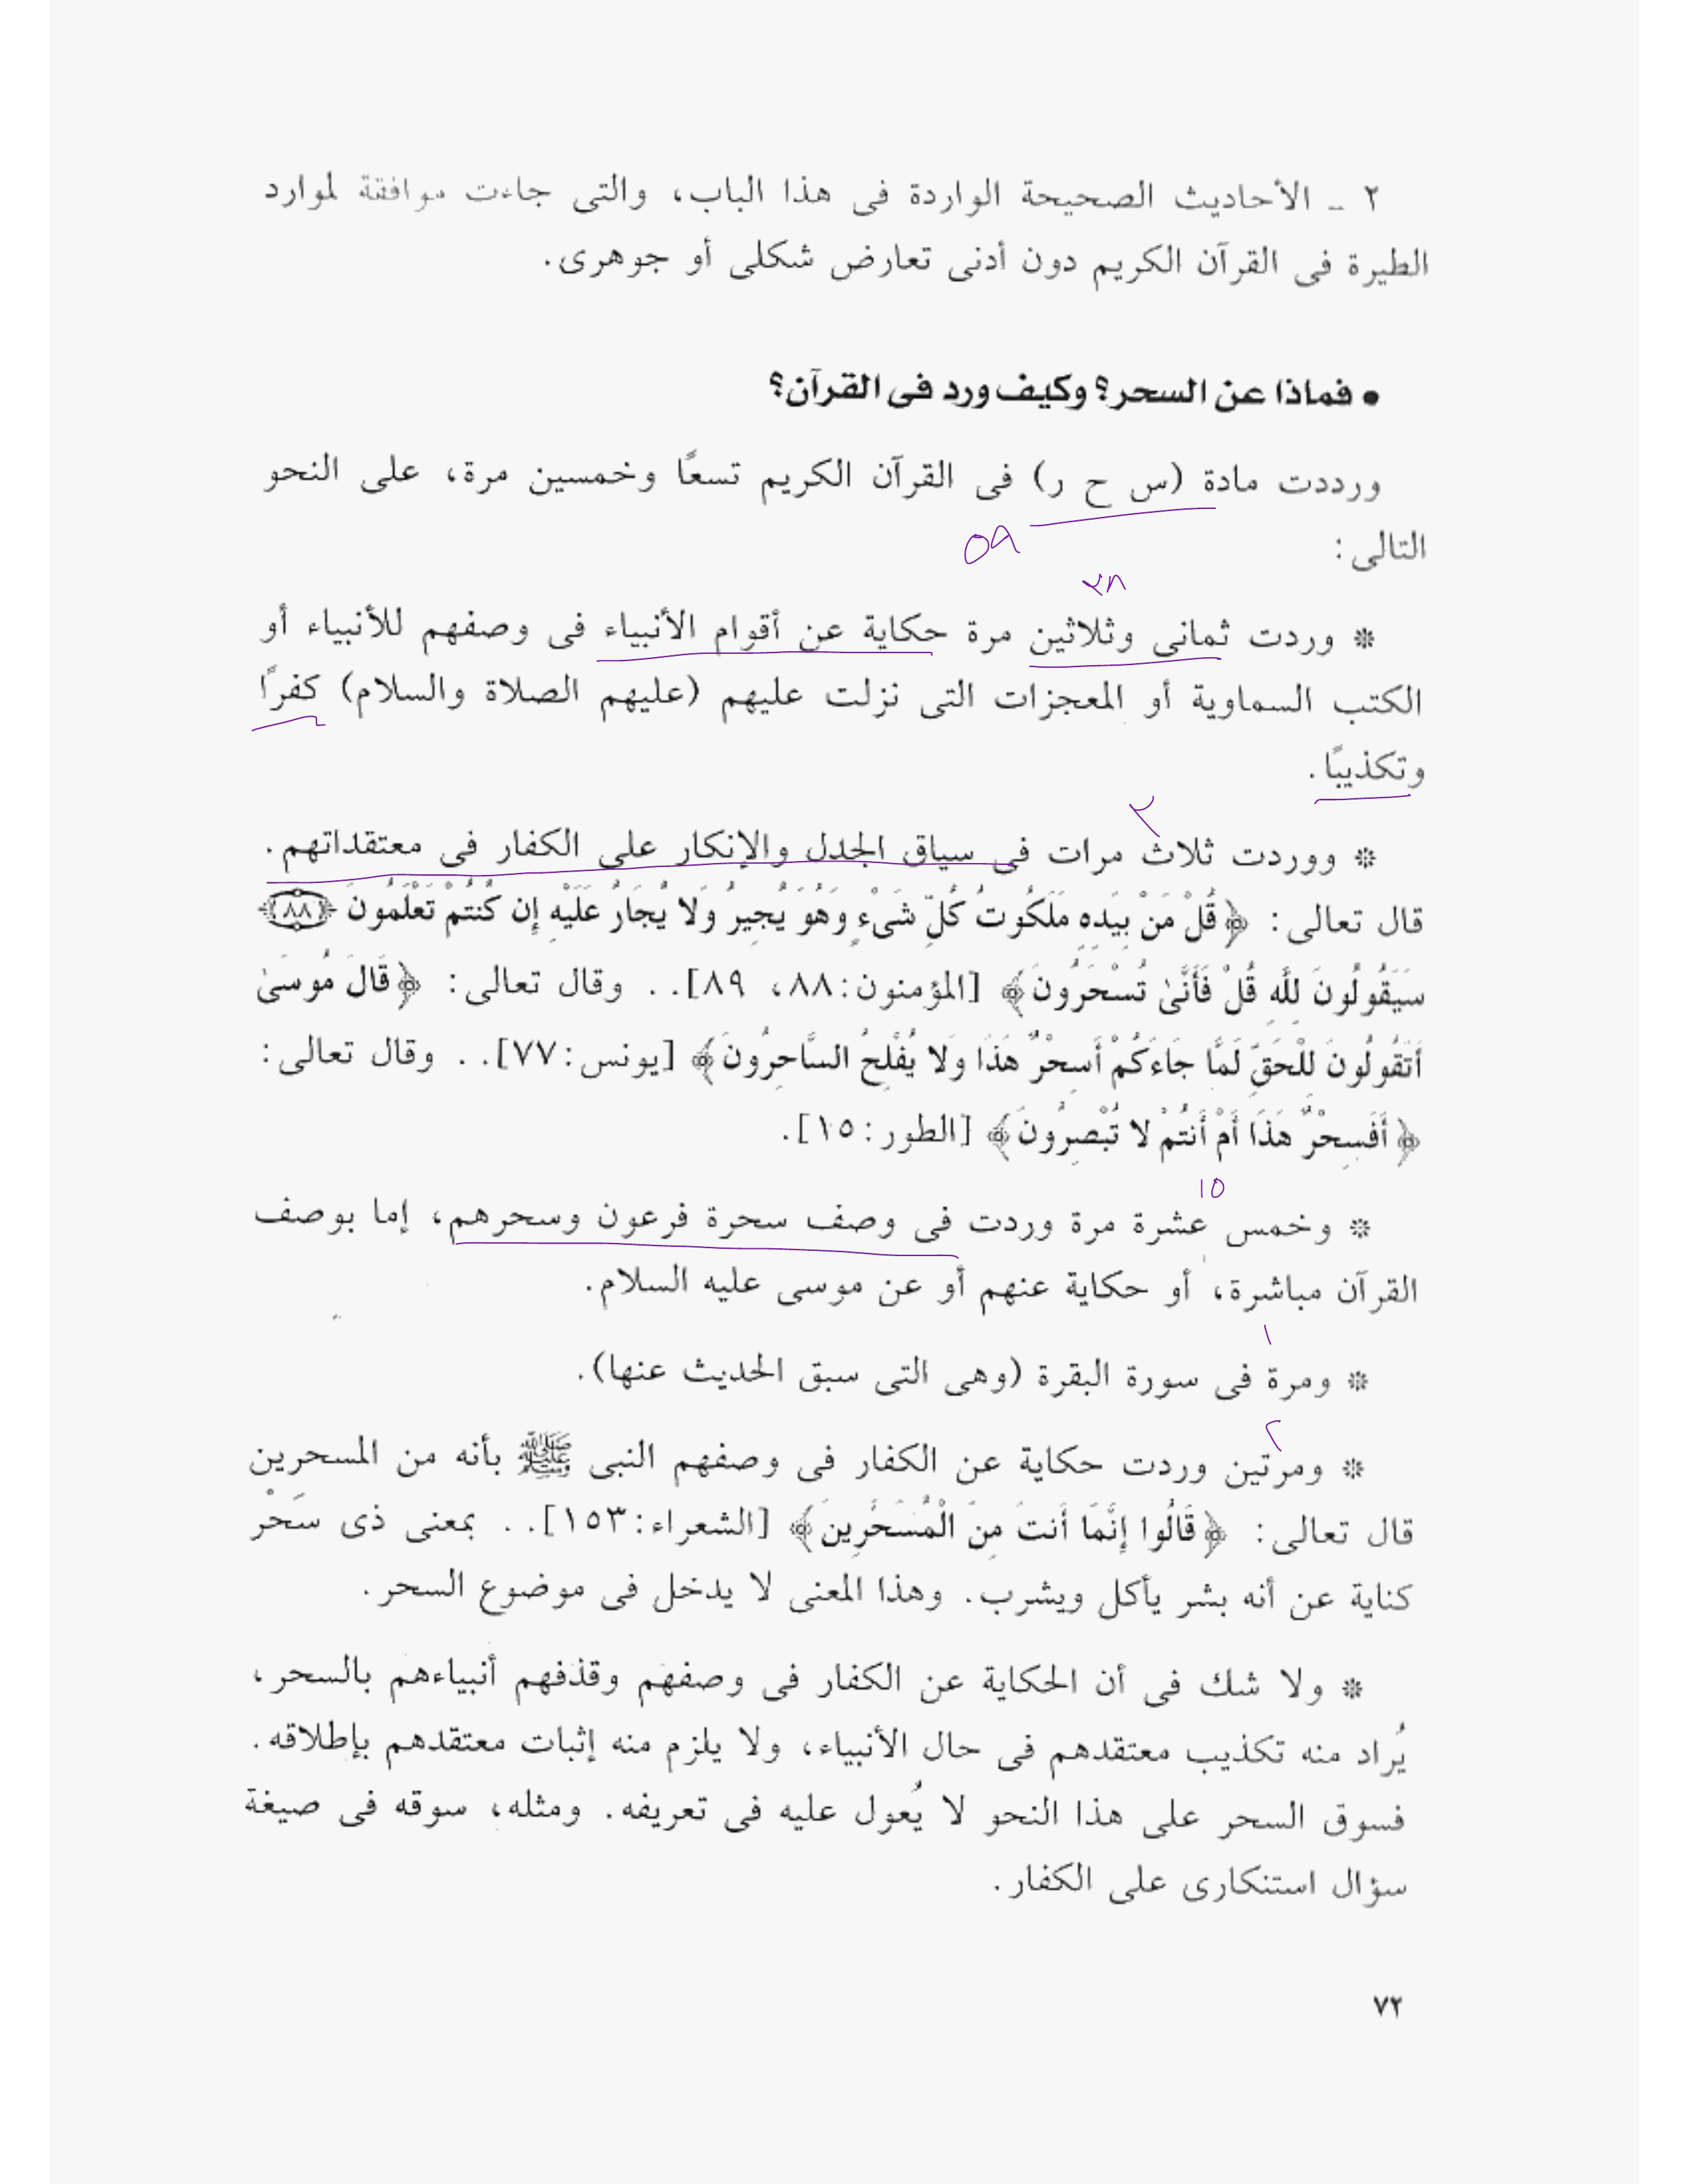 ٢ ــ الأحاديث الصحيحة الواردة فى هذا الباب، والتى جاءت موافقة لموارد
الطيرة فى القرآن الكريم دون أدنى تعارض شكلى أو جوهرى.
• فماذا عن السحر؟ وكيف ورد فى القرآن؟
ورددت مادة (س ح ر) فى القرآن الكريم تسعًا وخمسين مرة، على النحو
التالى:
٥٩
٣٨
* وردت ثمانى وثلاثين مرة حكاية عن أقوام الأنبياء فى وصفهم للأنبياء أو
الكتب السماوية أو المعجزات التى نزلت عليهم (عليهم الصلاة والسلام) كفرًا
وتكذيبًا.
* ووردت ثلاث مرات فى سياق الجدل والإنكار على الكفار فى معتقداتهم.
قال تعالى: ﴿قُلْ مَنْ بِيَدِهِ مَلَكُوتُ كُلِّ شَىْءٍ وَهُوَ يُجِيرُ وَلا يُجَارُ عَلَيْهِ إِن كُنتُمْ تَعْلَمُونَ (٨٨)
سَيَقُولُونَ لِلَّهِ قُلْ فَأَنَّىٰ تُسْحَرُونَ﴾ [المؤمنون:٨٨، ٨٩].. وقال تعالى: ﴿قَالَ مُوسَىٰ
أَتَقُولُونَ لِلْحَقِّ لَمَّا جَاءَكُمْ أَسِحْرٌ هَذَا وَلا يُفْلِحُ السَّاحِرُونَ﴾ [يونس:٧٧].. وقال تعالى:
﴿أَفَسِحْرٌ هَذَا أَمْ أَنتُمْ لا تُبْصِرُونَ﴾ [الطور:١٥].
١٥
* وخمس عشرة مرة وردت فى وصف سحرة فرعون وسحرهم، إما بوصف
القرآن مباشرة، أو حكاية عنهم أو عن موسى عليه السلام.
١
* ومرة فى سورة البقرة (وهى التى سبق الحديث عنها).
٢
* ومرتين وردت حكاية عن الكفار فى وصفهم النبى ﷺ بأنه من المسحرين
قال تعالى: ﴿قَالُوا إِنَّمَا أَنتَ مِنَ الْمُسَحَّرِينَ﴾ [الشعراء:١٥٣].. بمعنى ذى سَحْر
كناية عن أنه بشر يأكل ويشرب. وهذا المعنى لا يدخل فى موضوع السحر.
* ولا شك فى أن الحكاية عن الكفار فى وصفهم وقذفهم أنبياءهم بالسحر،
يُراد منه تكذيب معتقدهم فى حال الأنبياء، ولا يلزم منه إثبات معتقدهم بإطلاقه.
فسوق السحر على هذا النحو لا يُعول عليه فى تعريفه. ومثله، سوقه فى صيغة
سؤال استنكارى على الكفار.
٧٢